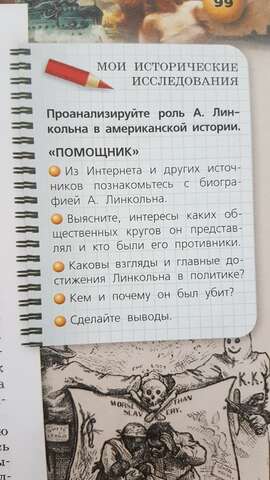 99
МОИ ИСТОРИЧЕСКИЕ
ИССЛЕДОВАНИЯ
Проанализируйте роль А. Лин-
кольна в американской истории.
«ПОМОЩНИК»
Из Интернета и других источ-
ников познакомьтесь с биогра-
фией А. Линкольна.
Выясните, интересы каких об-
щественных кругов он представ-
лял и кто были его противники.
Каковы взгляды и главные до-
стижения Линкольна в политике?
Кем и почему он был убит?
Сделайте выводы.
K.K.
WORSE THAN
SLAVERY.